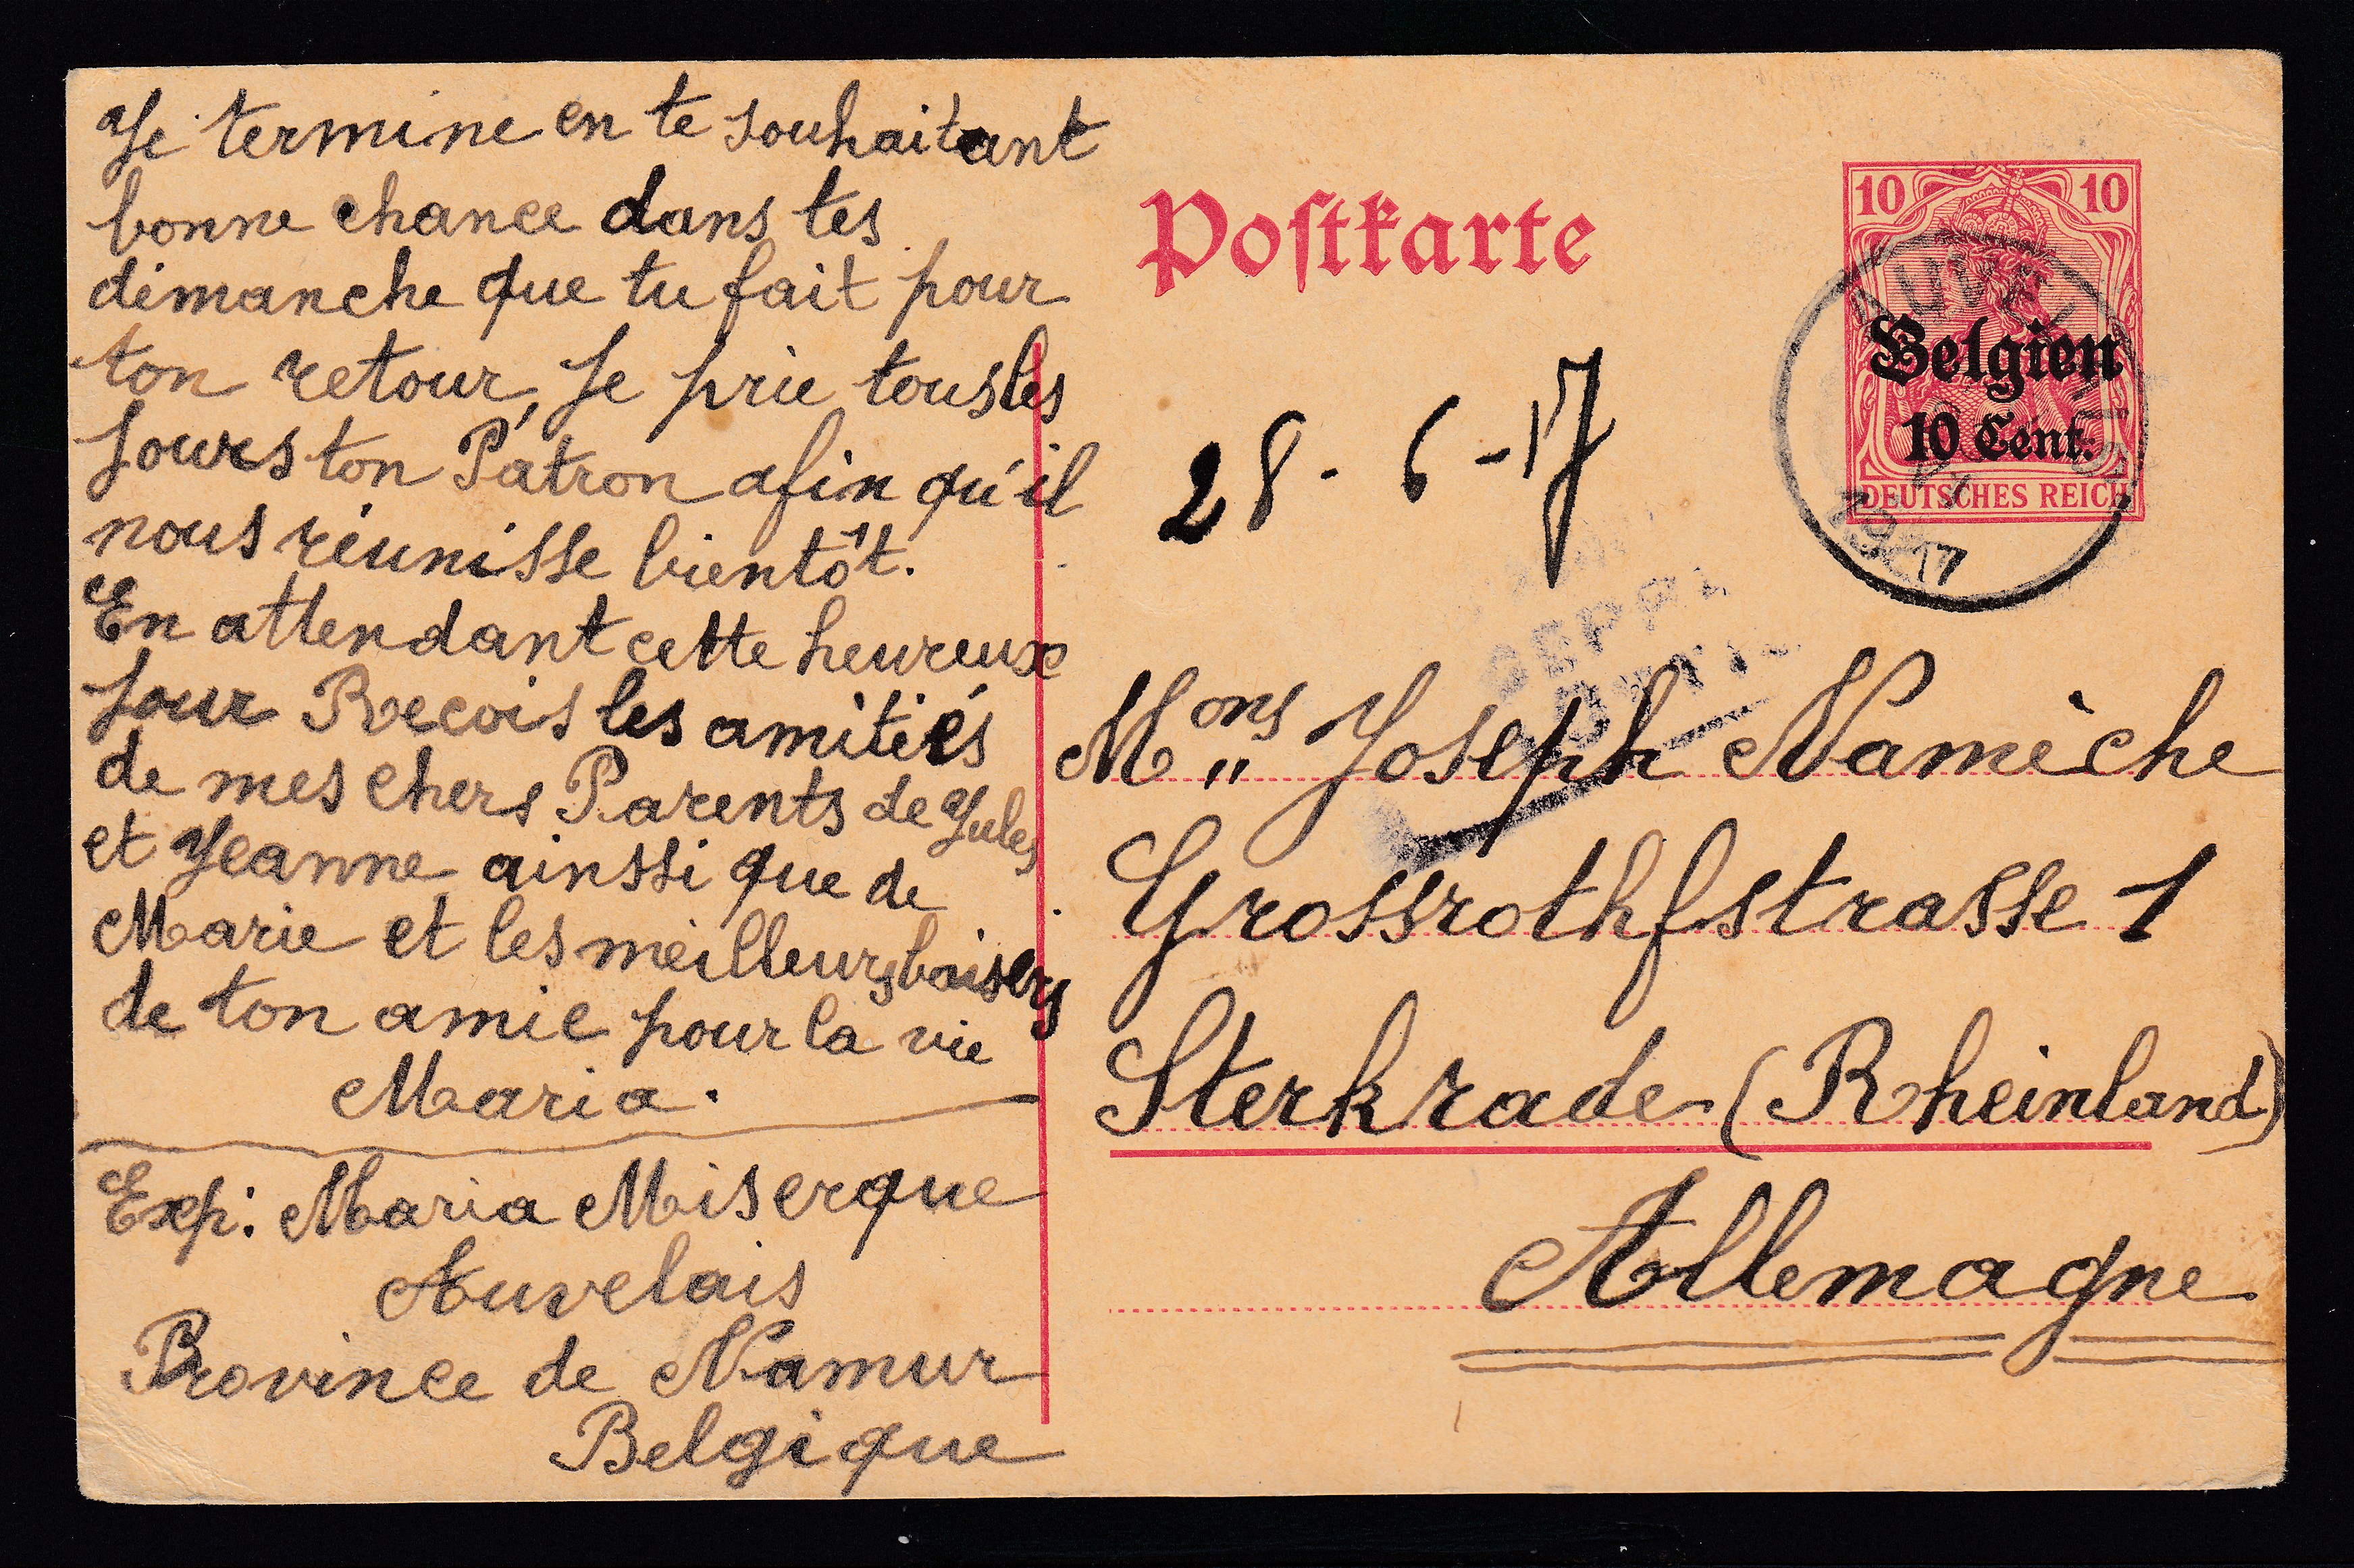 Je termine en te souhaitant
bonne chance dans tes
démanche que tu fait pour
ton retour, Je prie tous les
Jours ton Patron afin qu'il
nous réunisse bientôt.
En attendant cette heureux
Jour Recois les amitiés
de mes chers Parents de Jules
et Jeanne ainssi que de
Marie et les meilleurs baisers
de ton amie pour la vie
Maria.
Exp: Maria Miserque
Auvelais
Province de Namur
Belgique
Postkarte
10 10
Belgien
10 Cent.
DEUTSCHES REICH
AUVELAIS
1917
28-6-17
Mons Joseph Namèche
Grossrothfstrasse 1
Sterkrade (Rheinland)
Allemagne